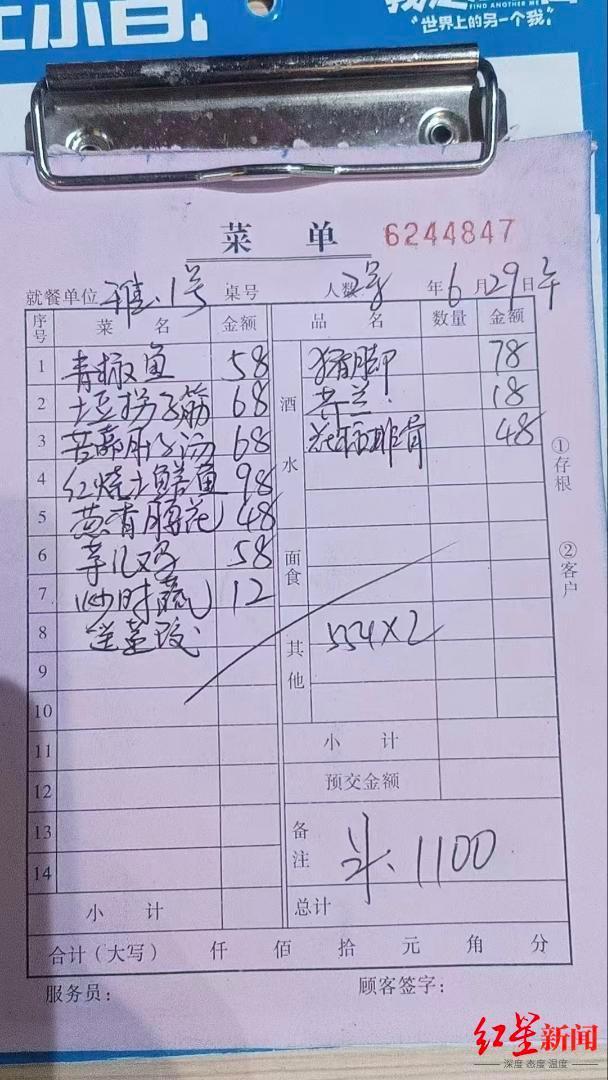 FIND ANOTHER ME
“世界上的另一个我”
菜 单 6244847
就餐单位 雅、1号 桌号 人数 2号 年 6 月 29 日 午
序号 菜 名 金额 品 名 数量 金额
1 青椒鱼 58 酒水 猪脚 78
2 土豆拐子筋 68 芥兰 18
3 68 排骨 48
4 红烧土鳝鱼 98
5 葱香腰花 48
6 58 面食
7 炒时蔬 12
8 送 其他 554×2
9
10
11 小 计
12 预交金额
13 备注 斗、1100
14
小 计 总计
合计(大写) 仟 佰 拾 元 角 分
服务员: 顾客签字:
①存根
②客户
红星新闻
深度 态度 温度